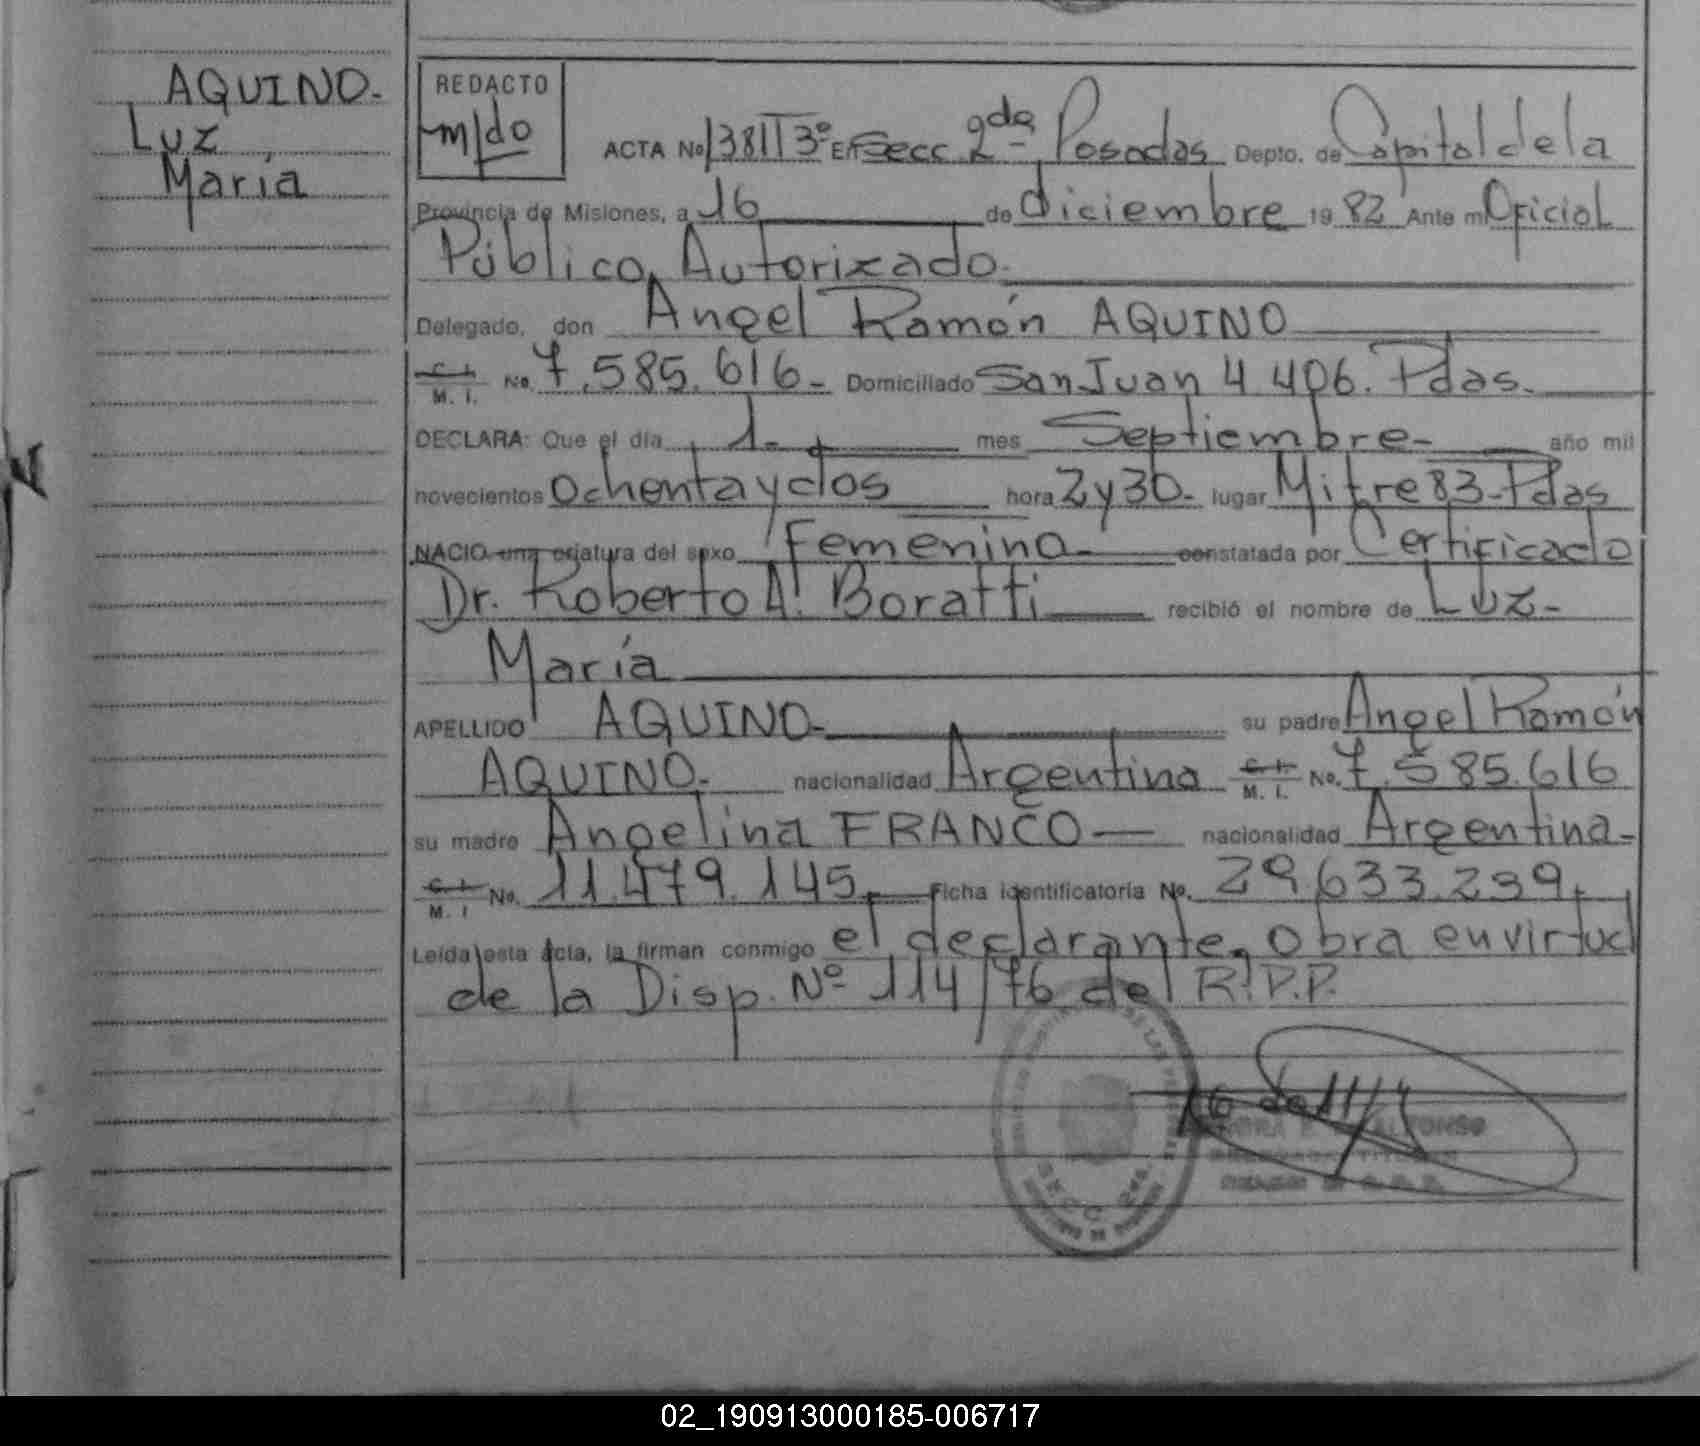 AQUINO.
Luz
María
REDACTO
m/do
ACTA No 1381T3º En Secc 2da Posadas Depto. de Capital de la
Provincia de Misiones, a 16 de diciembre 1982 Ante mi Oficial
Público Autorizado.
Delegado, don Angel Ramón AQUINO
C. I.
M. I. No. 7.585.616- Domiciliado San Juan 4406. Pdas.
DECLARA: Que el día 1- mes Septiembre- año mil
novecientos Ochenta y dos hora 2y30- lugar Mitre 83-Pdas
NACIO una criatura del sexo femenino- constatada por Certificado
Dr. Roberto A. Boratti recibió el nombre de Luz-
María
APELLIDO AQUINO- su padre Angel Ramón
AQUINO- nacionalidad Argentina C. I. M. I. No. 7.585.616
su madre Angelina FRANCO- nacionalidad Argentina-
C. I. M. I No. 11.479.145 Ficha identificatoria No. 29.633.239
Leída esta acta, la firman conmigo el declarante, Obra en virtud
de la Disp. Nº 114/76 del R.P.P.
SECC. 2da.
ALFONSO
02_190913000185-006717